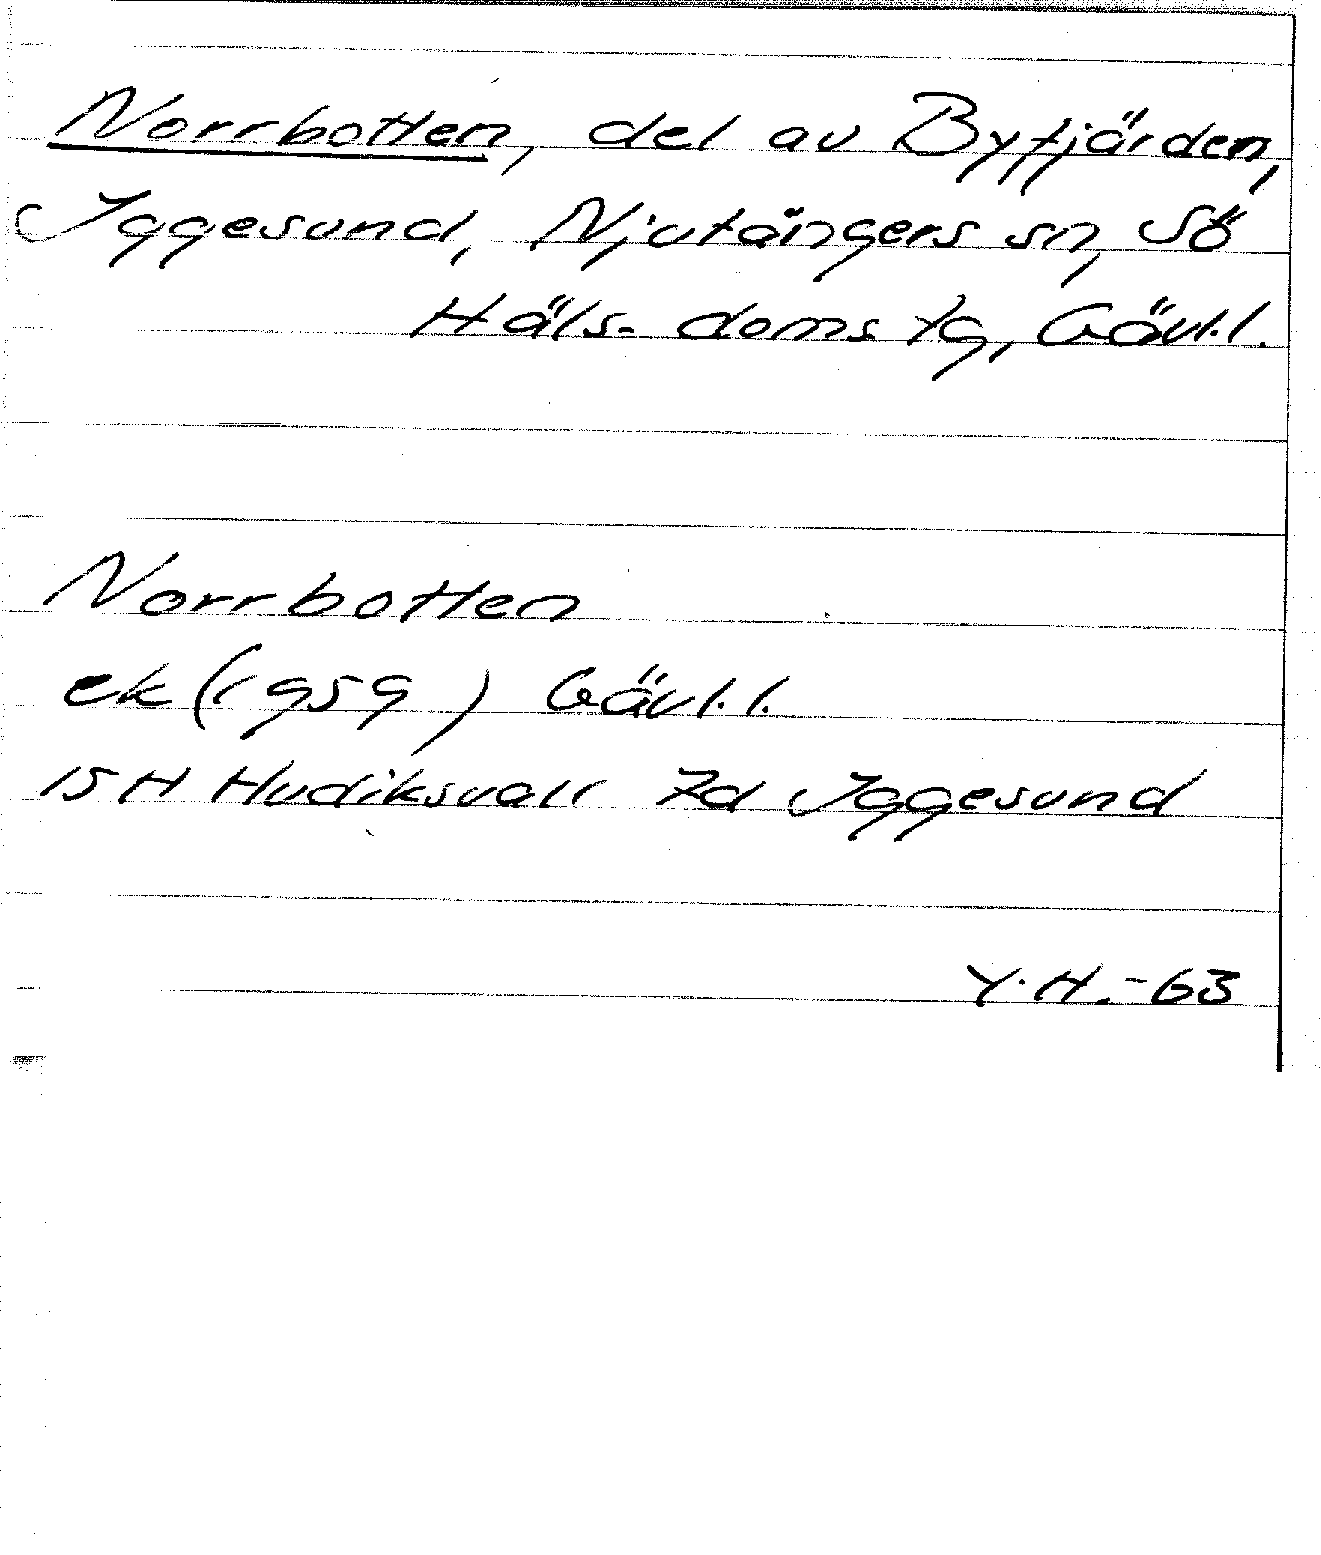 Norrbotten, del av Byfjärden,
Iggesund, Njutångers sn, Sö
Häls. doms tg, Gävl.l.
Norrbotten
ek (1959) Gävl.l.
15H Hudiksvall 7d Iggesund
Y.H.-63